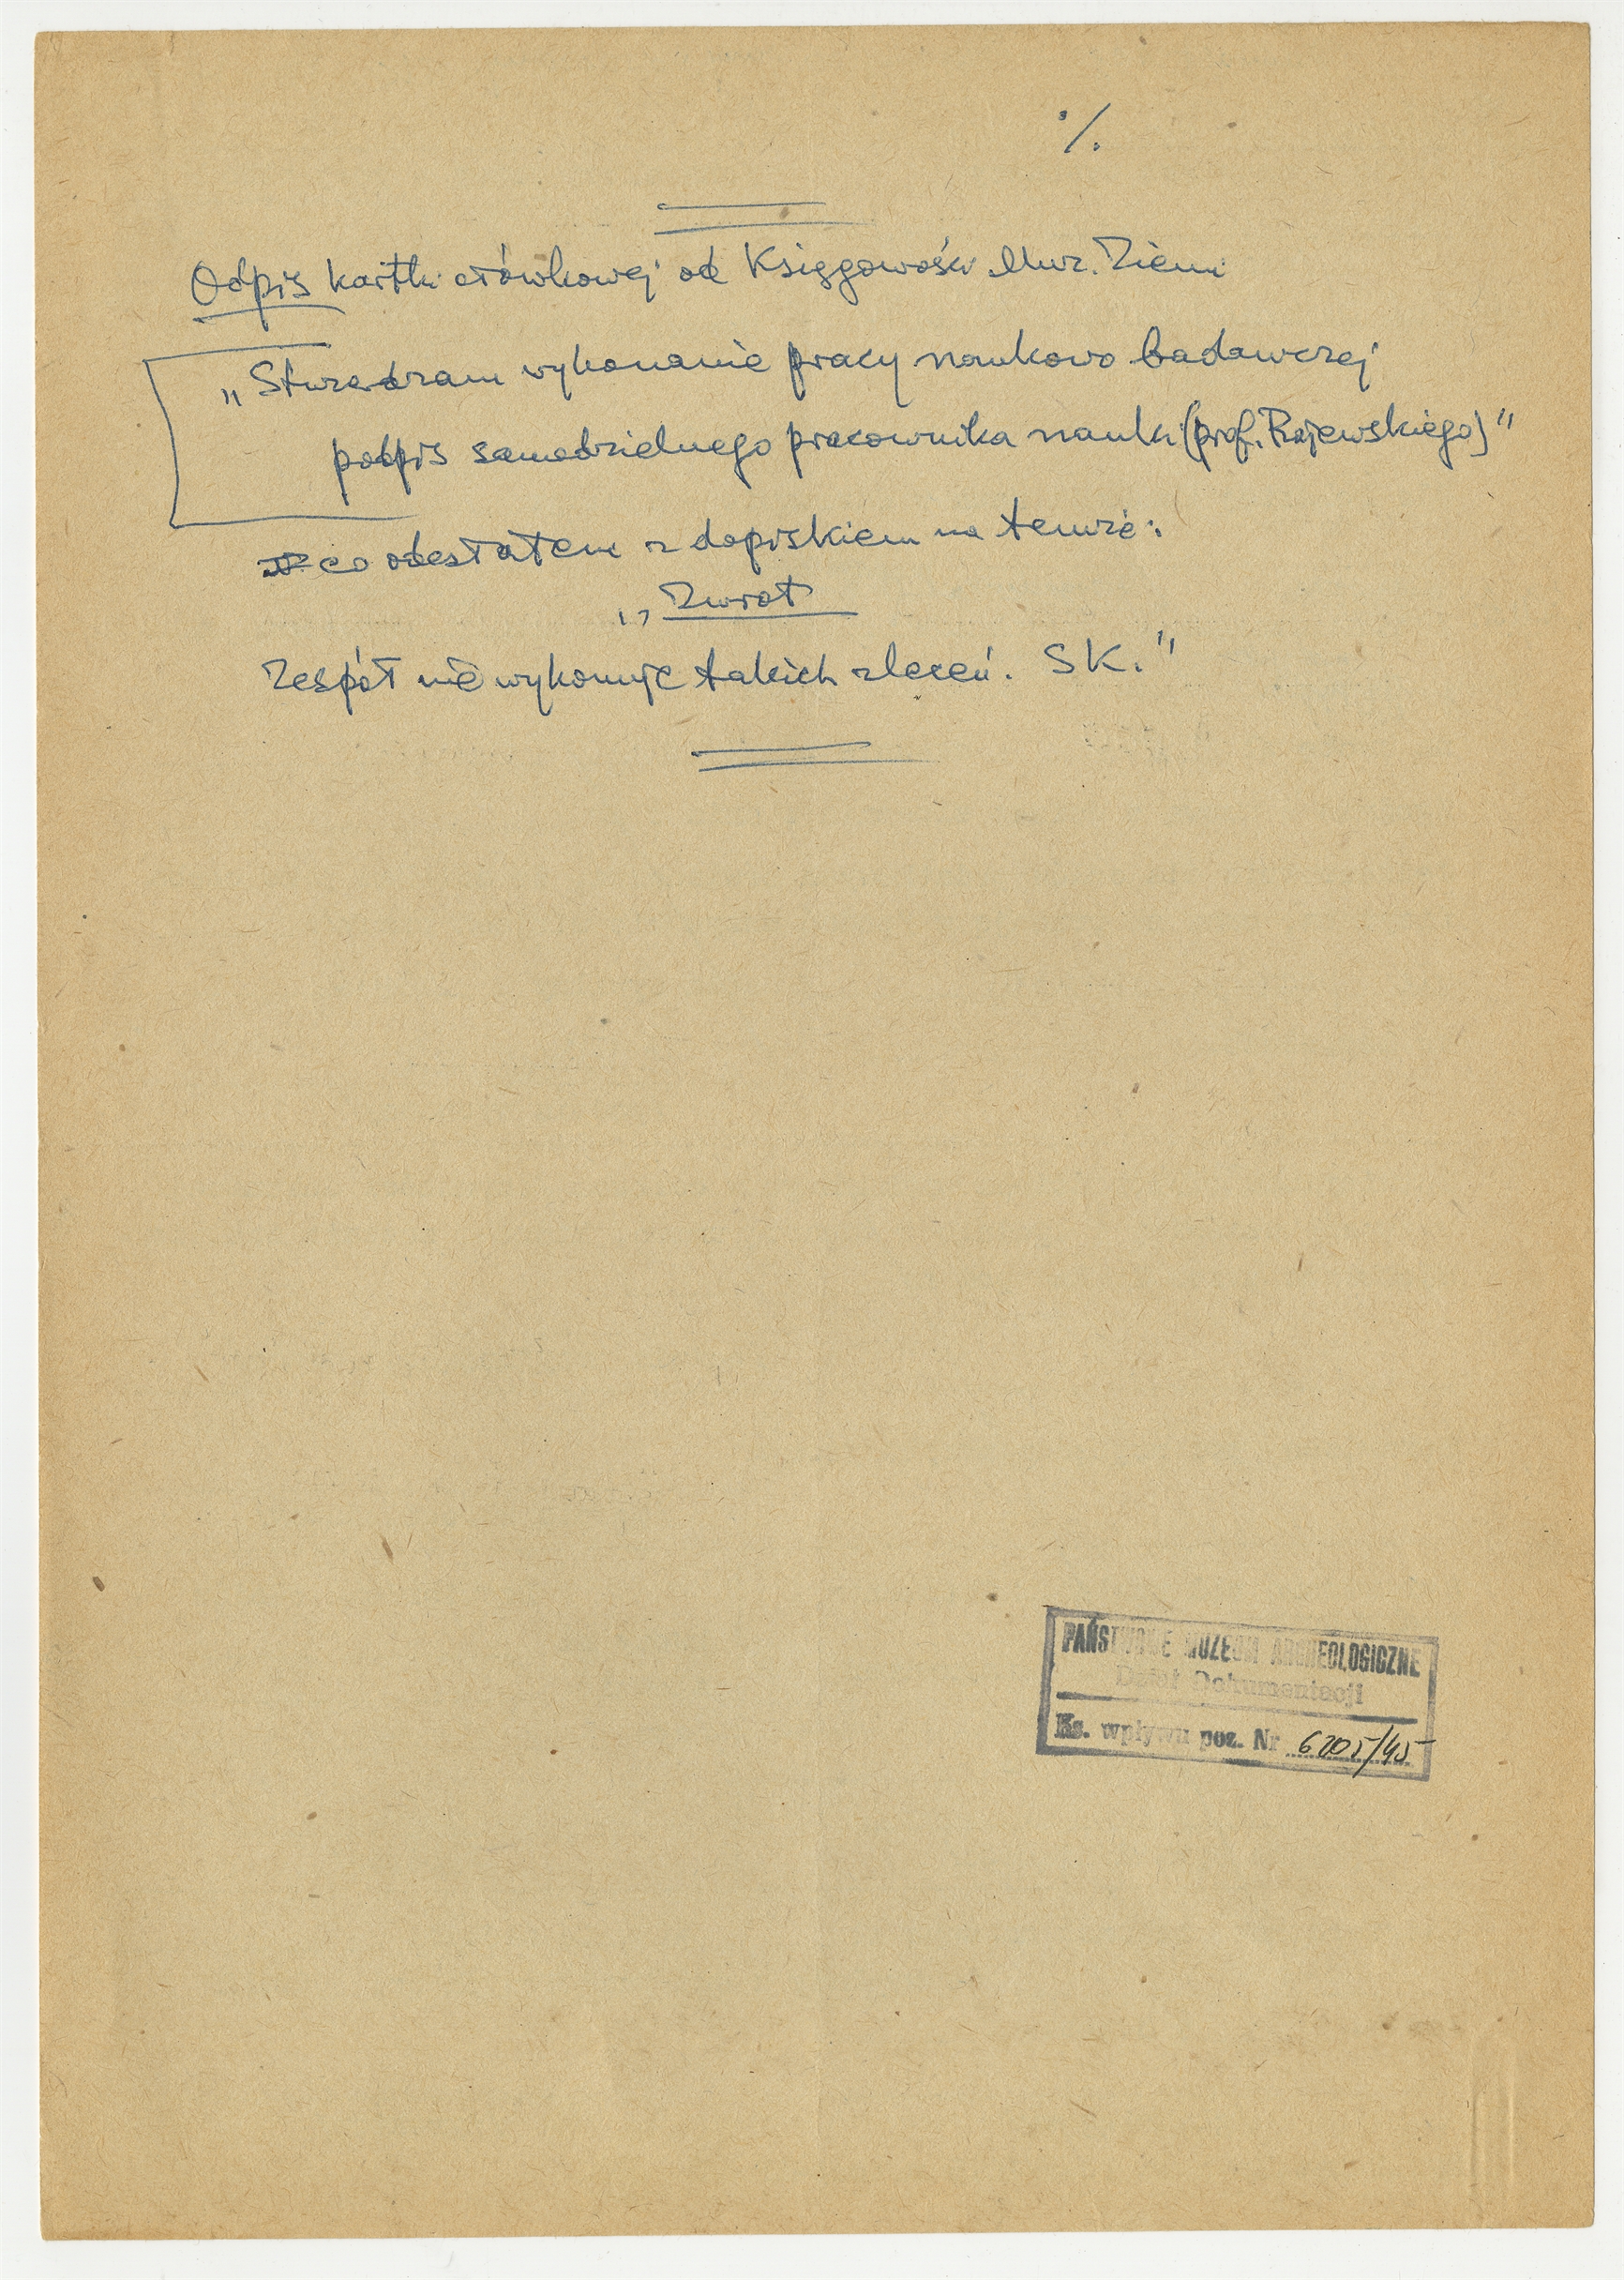 ·/.
Odpis kartki ołówkowej od Księgowości Muz. Ziemi
„Stwierdzam wykonanie pracy naukowo badawczej
podpis samodzielnego pracownika nauki (prof. Rajewskiego)”
co odesłałem z dopiskiem na temże:
„Zwrot
Zespół nie wykonuje takich zleceń. SK.”
PAŃSTWOWE MUZEUM ARCHEOLOGICZNE
Dział Dokumentacji
Ks. wpływu poz. Nr 6205/45